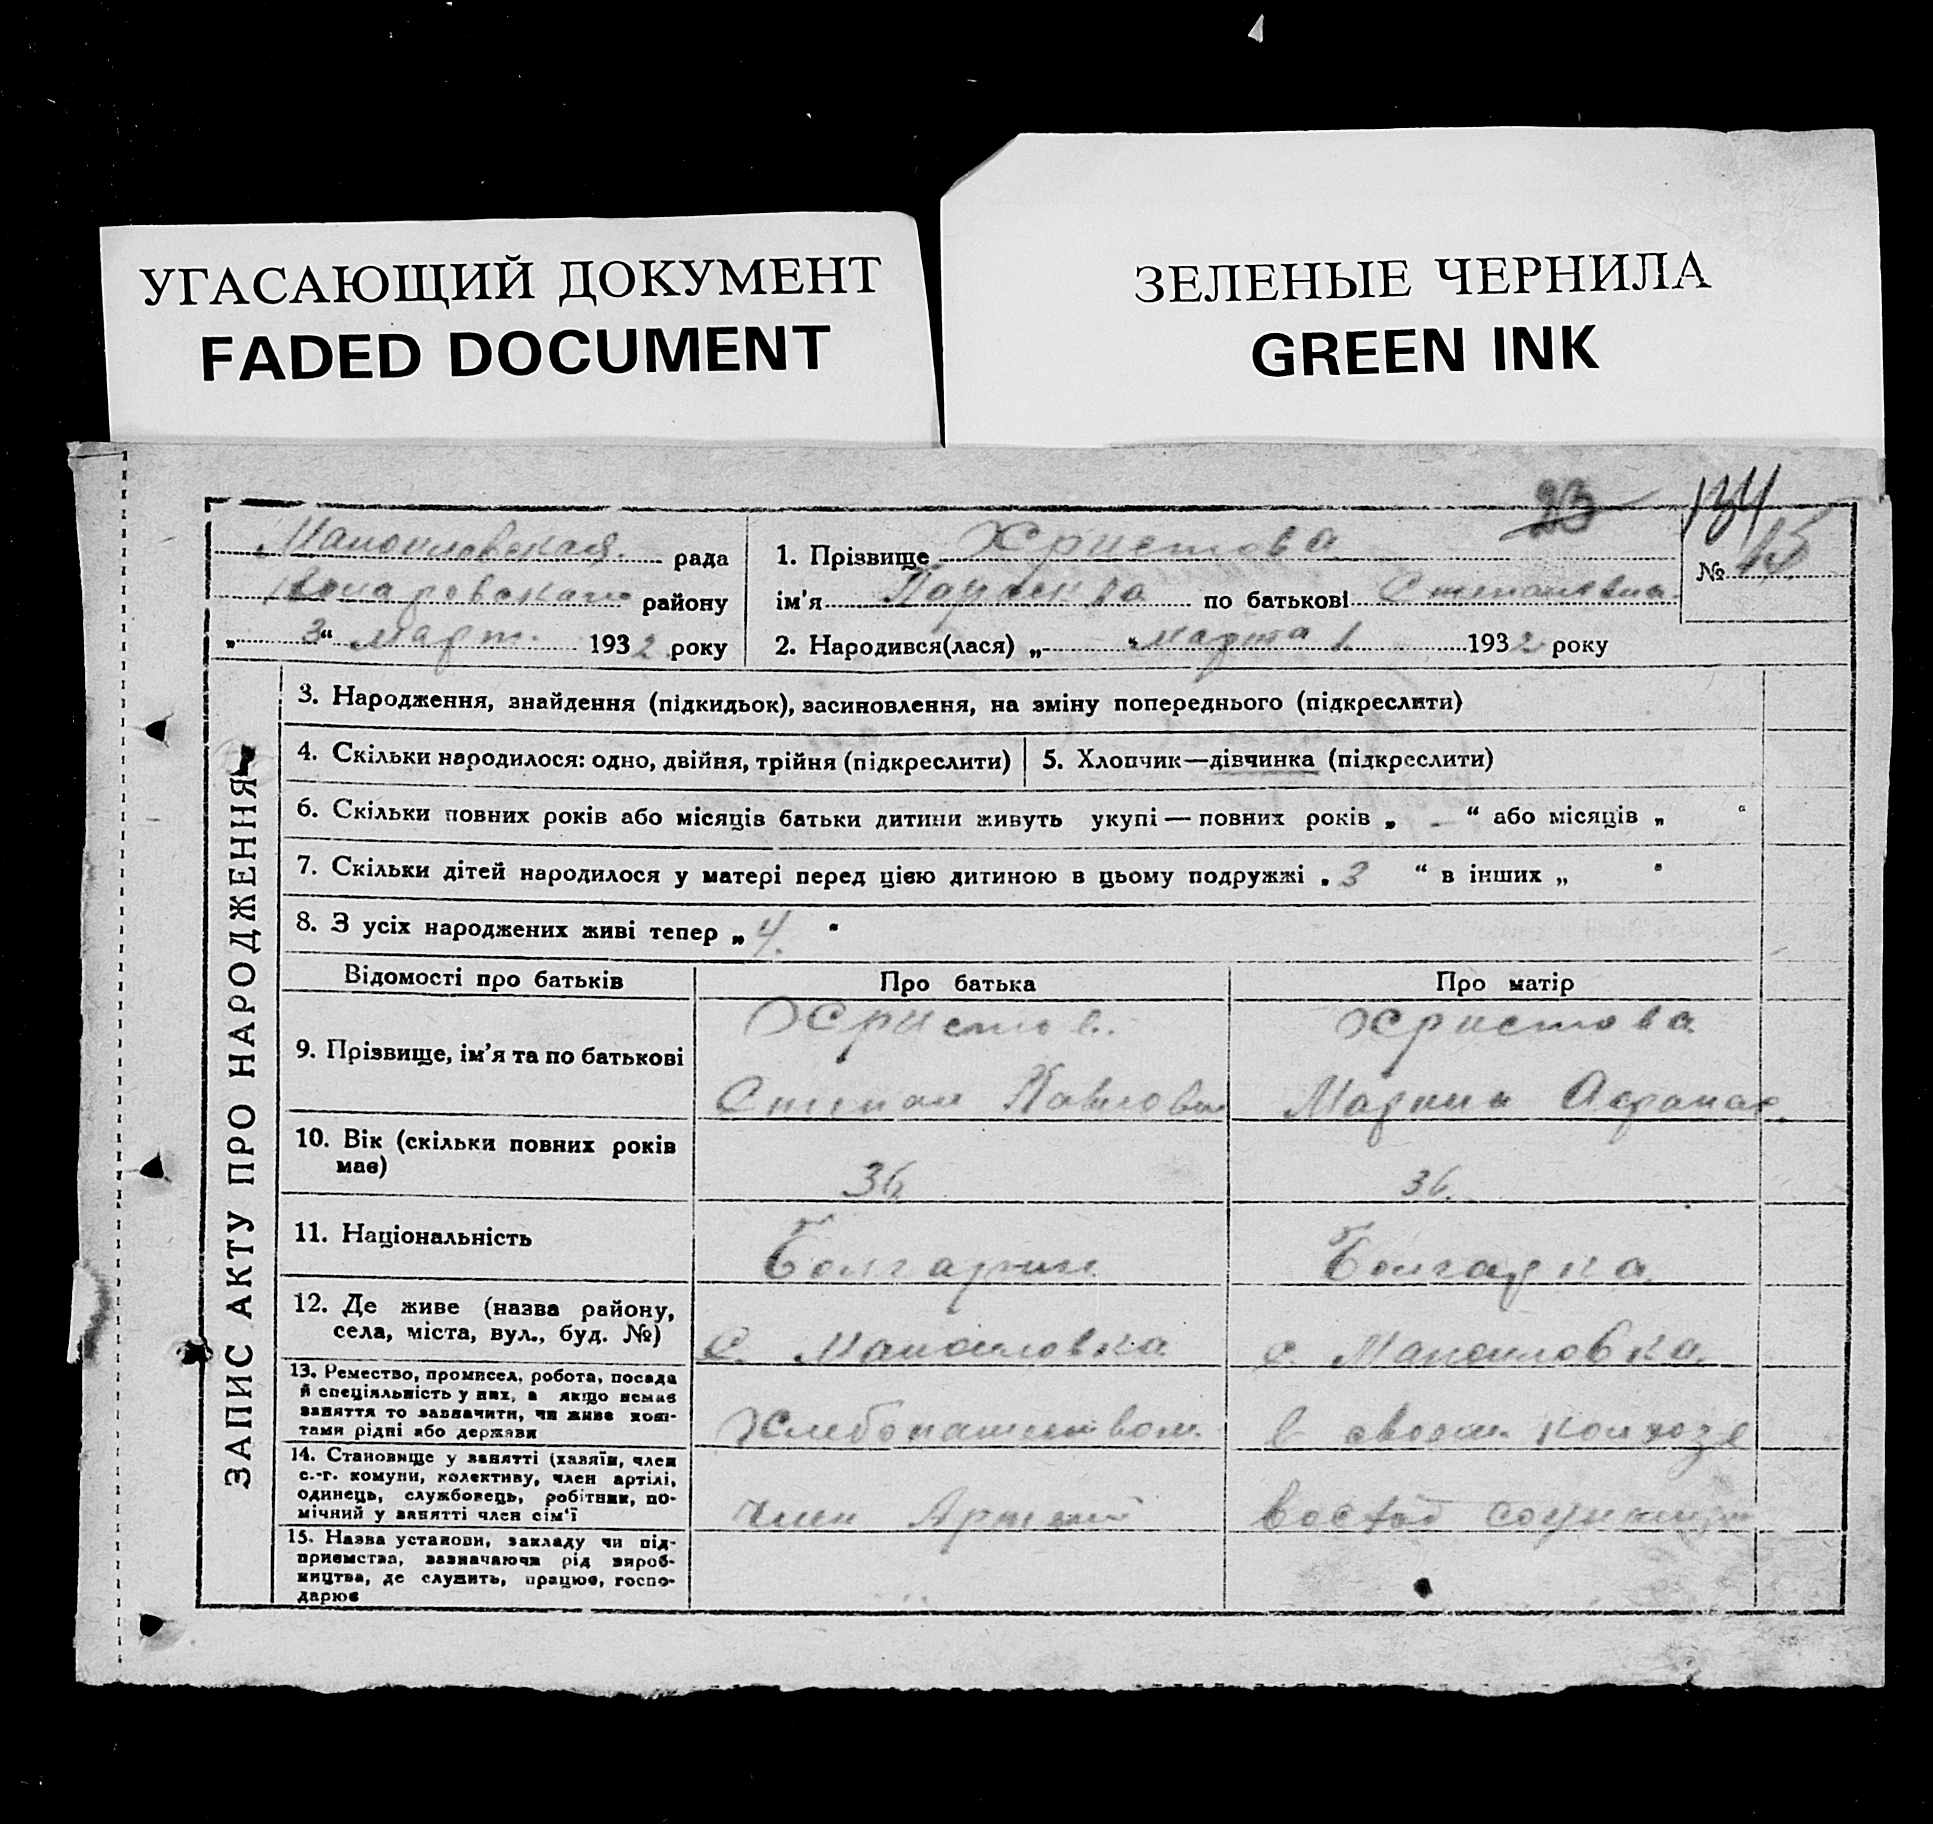 УГАСАЮЩИЙ ДОКУМЕНТ
FADED DOCUMENT
ЗЕЛЕНЫЕ ЧЕРНИЛА
GREEN INK
134
Маноиловская рада
району
„ 3 “ март. 1932 року
1. Прізвище Христова
№ 15
ім'я по батькові Степановна
2. Народився(лася) „ “ марта 1. 1932 року
ЗАПИС АКТУ ПРО НАРОДЖЕННЯ
3. Народження, знайдення (підкидьок), засиновлення, на зміну попереднього (підкреслити)
4. Скільки народилося: одно, двійня, трійня (підкреслити)
5. Хлопчик—дівчинка (підкреслити)
6. Скільки повних років або місяців батьки дитини живуть укупі — повних років „ – “ або місяців „ “
7. Скільки дітей народилося у матері перед цією дитиною в цьому подружжі „ 3 “ в інших „ “
8. З усіх народжених живі тепер „ 4. “
Відомості про батьків
Про батька
Про матір
9. Прізвище, ім'я та по батькові
Христов.
Степан Павлович
Христова
Марина Афанас.
10. Вік (скільки повних років
має)
36.
36.
11. Національність
Болгарин
Болгарка
12. Де живе (назва району,
села, міста, вул., буд. №)
с. Маноиловка
с. Маноиловка
13. Ремество, промисел, робота, посада
й спеціяльність у них, а якщо немає
заняття то зазначити, чи живе кош-
тами рідні або держави
Хлебопашеством.
в своем колхозе
14. Становище у занятті (хазяїн, член
с.-г. комуни, колективу, член артілі,
одинець, службовець, робітник, по-
мічний у занятті член сім'ї
член Артели
15. Назва установи, закладу чи під-
приємства, зазначаючи рід вироб-
ництва, де служить, працює, госпо-
дарює